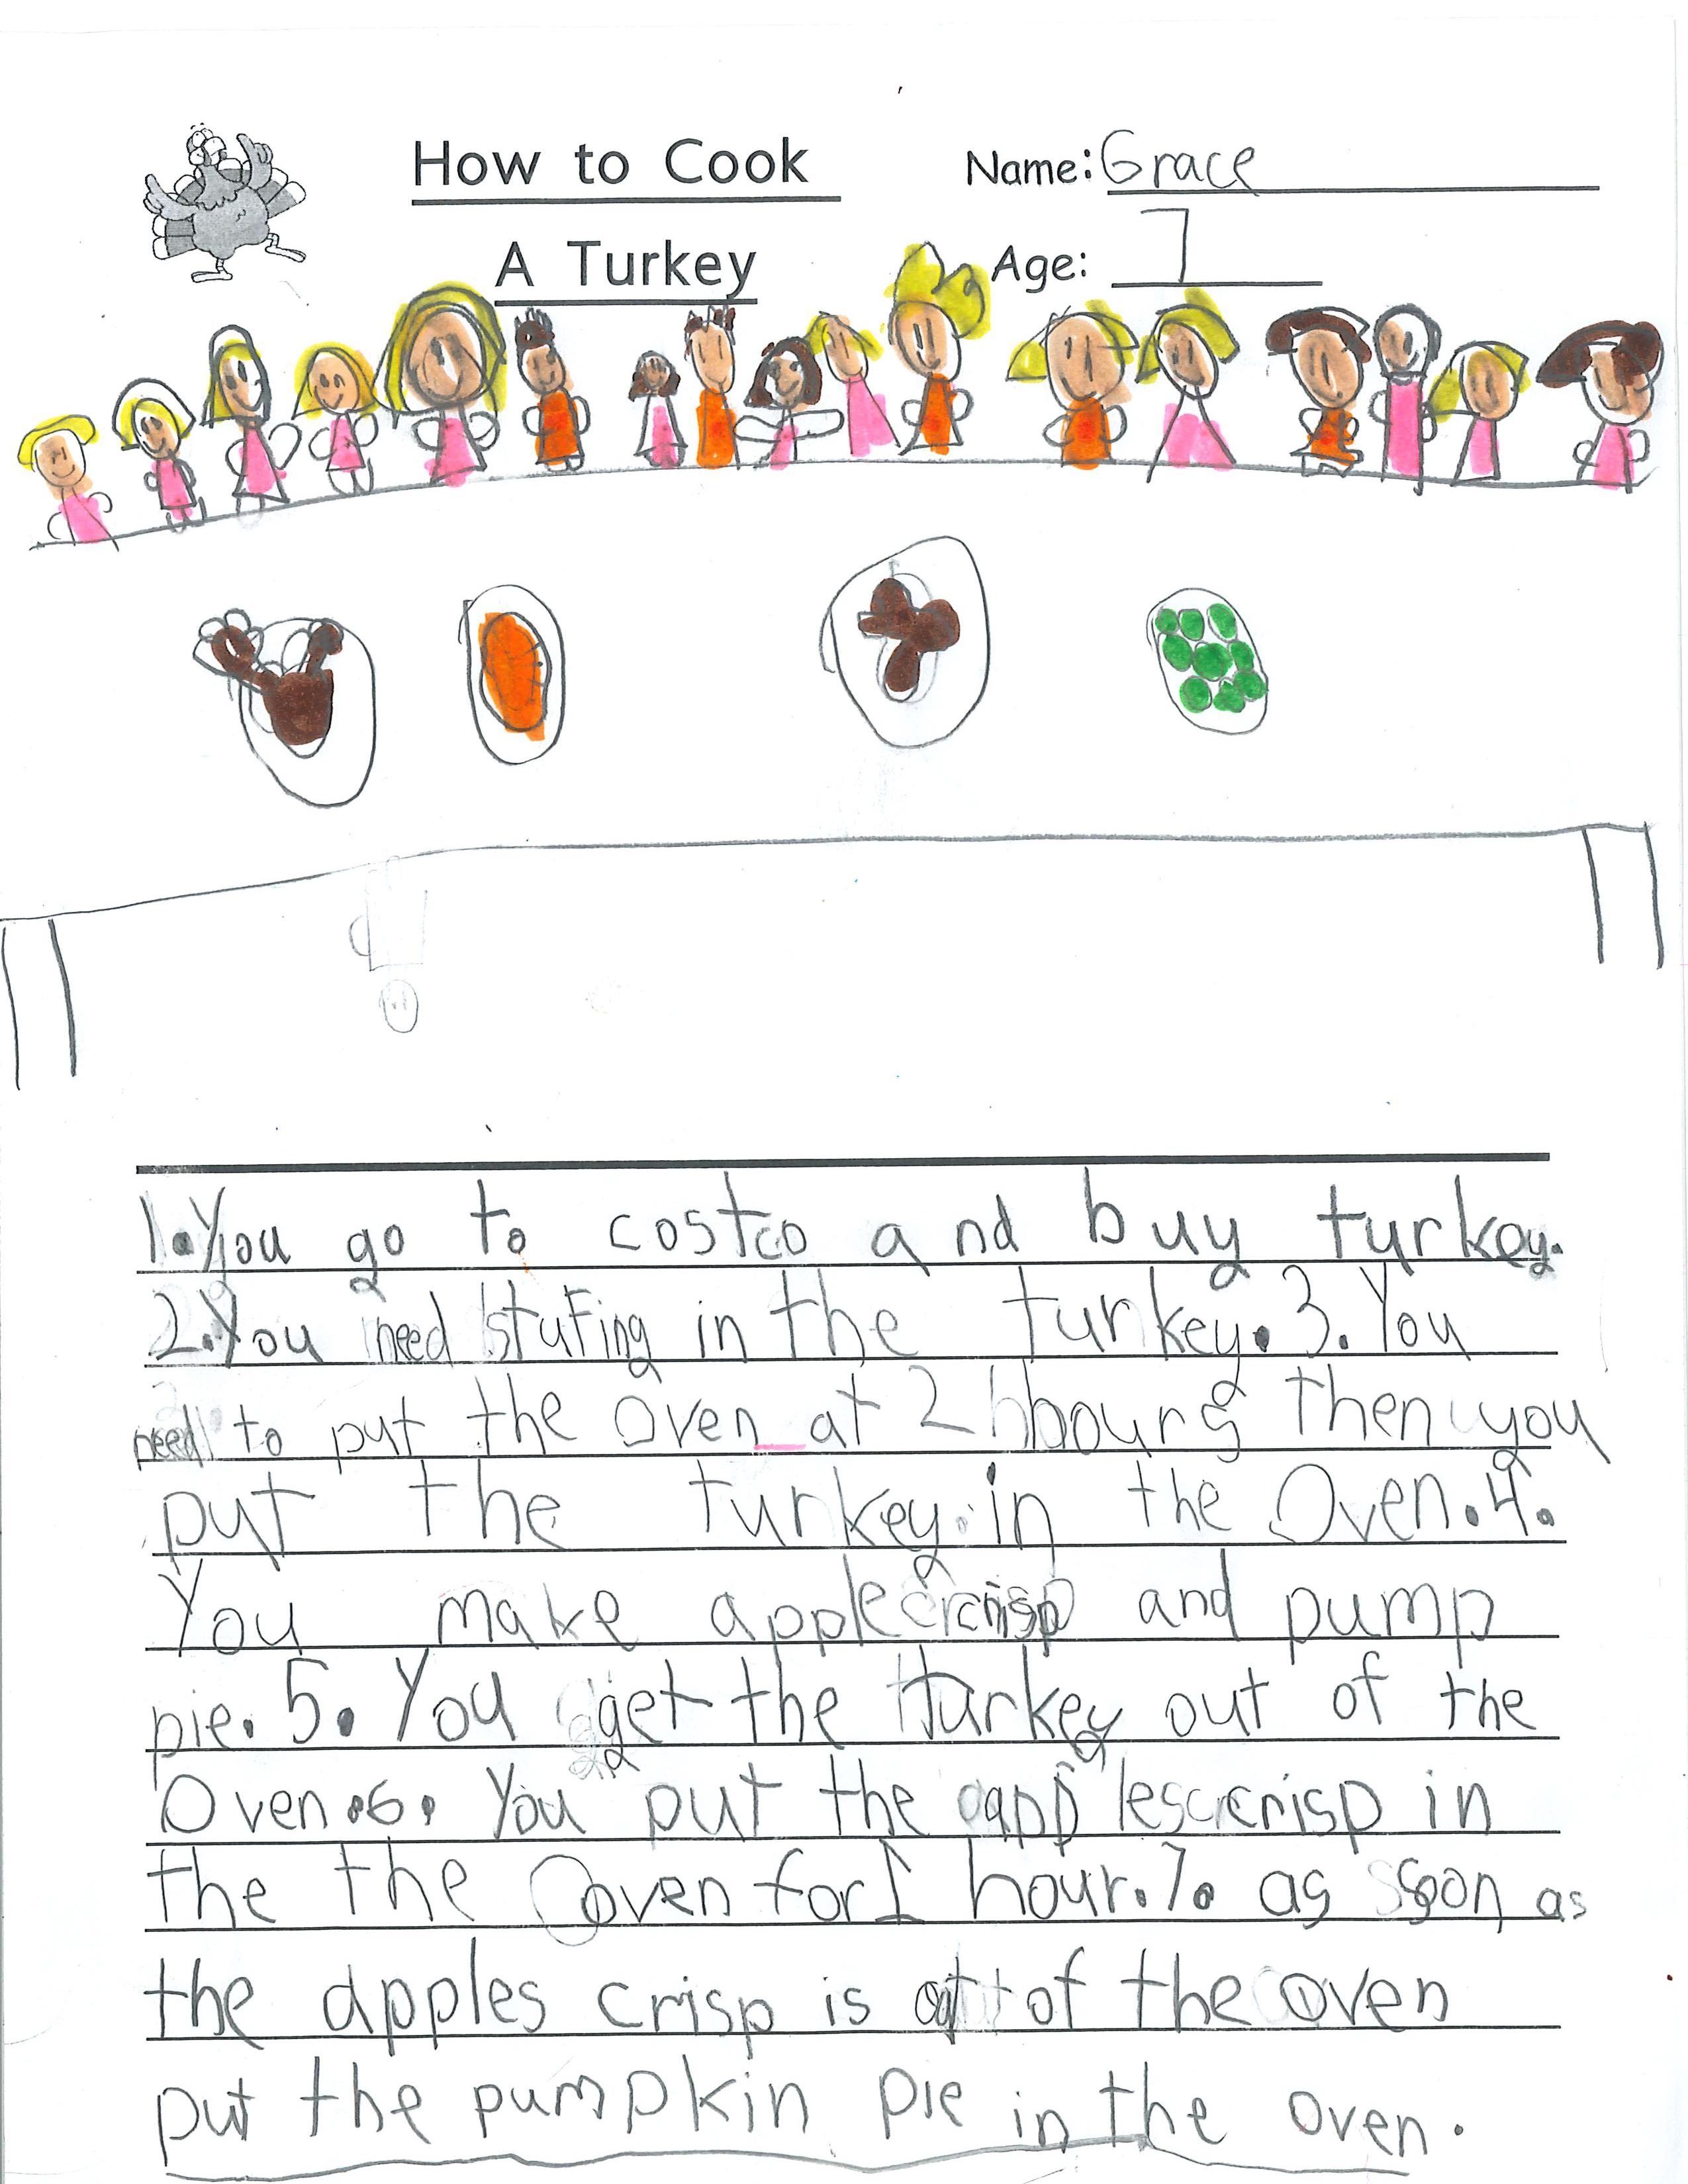 How to Cook
A Turkey
Name: Grace
Age: 7
1. You go to costco and buy turkey.
2. You need stufing in the turkey. 3. You
need to put the oven at 2 hours then you
put the turkey in the Oven. 4.
You make apple crisp and pump
pie. 5. You get the turkey out of the
Oven. 6. You put the apples crisp in
the the Oven for 1 hour. 7. as soon as
the apples crisp is out of the oven
put the pumpkin pie in the oven.